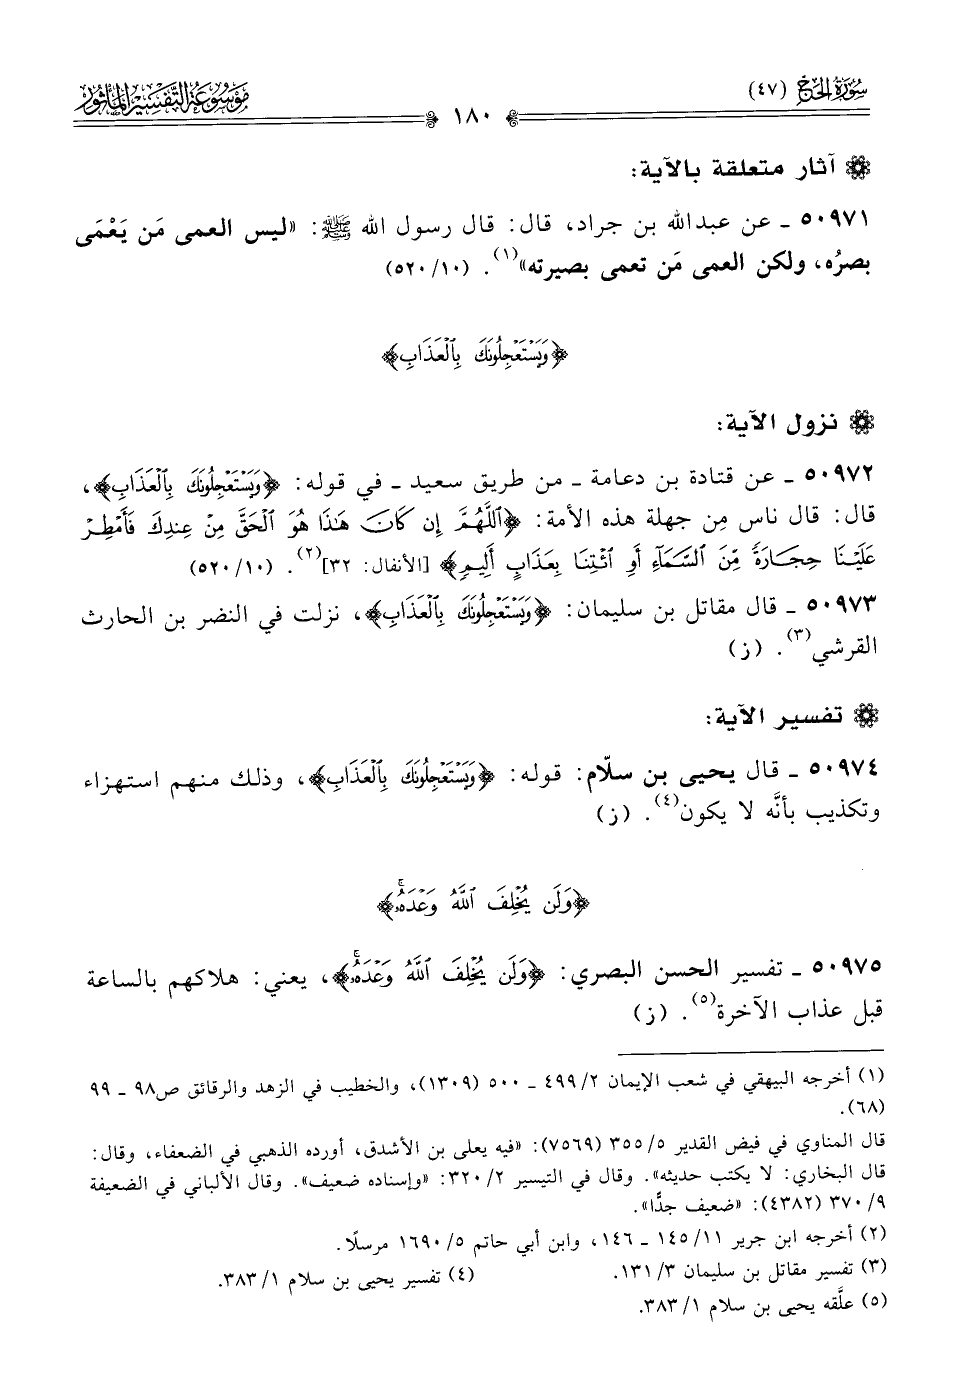 سُورَةُ الحَجّ (٤٧)
١٨٠
مَوْسُوعَةُ التَّفْسِيرِ المَأْثُور
آثار متعلقة بالآية:
٥٠٩٧١ ـ عن عبدالله بن جراد، قال: قال رسول الله ﷺ: «ليس العمى مَن يَعْمَى
بصرُه، ولكن العمى مَن تعمى بصيرته»(١). (٥٢٠/١٠)
﴿وَيَسْتَعْجِلُونَكَ بِالْعَذَابِ﴾
نزول الآية:
٥٠٩٧٢ ـ عن قتادة بن دعامة ـ من طريق سعيد ـ في قوله: ﴿وَيَسْتَعْجِلُونَكَ بِالْعَذَابِ﴾،
قال: قال ناس مِن جهلة هذه الأمة: ﴿اللَّهُمَّ إِن كَانَ هَٰذَا هُوَ الْحَقَّ مِنْ عِندِكَ فَأَمْطِرْ
عَلَيْنَا حِجَارَةً مِّنَ السَّمَاءِ أَوِ ائْتِنَا بِعَذَابٍ أَلِيمٍ﴾ [الأنفال: ٣٢](٢). (٥٢٠/١٠)
٥٠٩٧٣ ـ قال مقاتل بن سليمان: ﴿وَيَسْتَعْجِلُونَكَ بِالْعَذَابِ﴾، نزلت في النضر بن الحارث
القرشي(٣). (ز)
تفسير الآية:
٥٠٩٧٤ ـ قال يحيى بن سلّام: قوله: ﴿وَيَسْتَعْجِلُونَكَ بِالْعَذَابِ﴾، وذلك منهم استهزاء
وتكذيب بأنَّه لا يكون(٤). (ز)
﴿وَلَن يُخْلِفَ اللَّهُ وَعْدَهُۥۚ﴾
٥٠٩٧٥ ـ تفسير الحسن البصري: ﴿وَلَن يُخْلِفَ اللَّهُ وَعْدَهُۥۚ﴾، يعني: هلاكهم بالساعة
قبل عذاب الآخرة(٥). (ز)
(١) أخرجه البيهقي في شعب الإيمان ٤٩٩/٢ ـ ٥٠٠ (١٣٠٩)، والخطيب في الزهد والرقائق ص٩٨ ـ ٩٩
(٦٨).
قال المناوي في فيض القدير ٣٥٥/٥ (٧٥٦٩): «فيه يعلى بن الأشدق، أورده الذهبي في الضعفاء، وقال:
قال البخاري: لا يكتب حديثه». وقال في التيسير ٣٢٠/٢: «وإسناده ضعيف». وقال الألباني في الضعيفة
٣٧٠/٩ (٤٣٨٢): «ضعيف جدًّا».
(٢) أخرجه ابن جرير ١٤٥/١١ ـ ١٤٦، وابن أبي حاتم ١٦٩٠/٥ مرسلًا.
(٣) تفسير مقاتل بن سليمان ١٣١/٣. (٤) تفسير يحيى بن سلام ٣٨٣/١.
(٥) علَّقه يحيى بن سلام ٣٨٣/١.